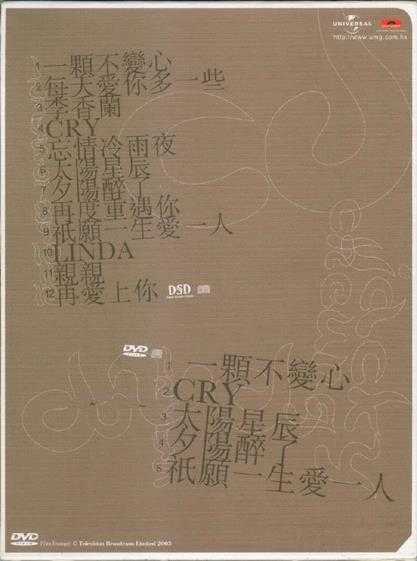 UNIVERSAL
http://www.umg.com.hk
1 一顆不變心
2 每天愛你多一些
3 李香蘭
4 CRY
5 忘情冷雨夜
6 太陽星辰
7 夕陽醉了
8 再度重遇你
9 祇願一生愛一人
10 LINDA
11 親親
12 再愛上你
DSD
DVD
1 一顆不變心
2 CRY
3 太陽星辰
4 夕陽醉了
5 祇願一生愛一人
DVD
Television Broadcasts Limited 2005